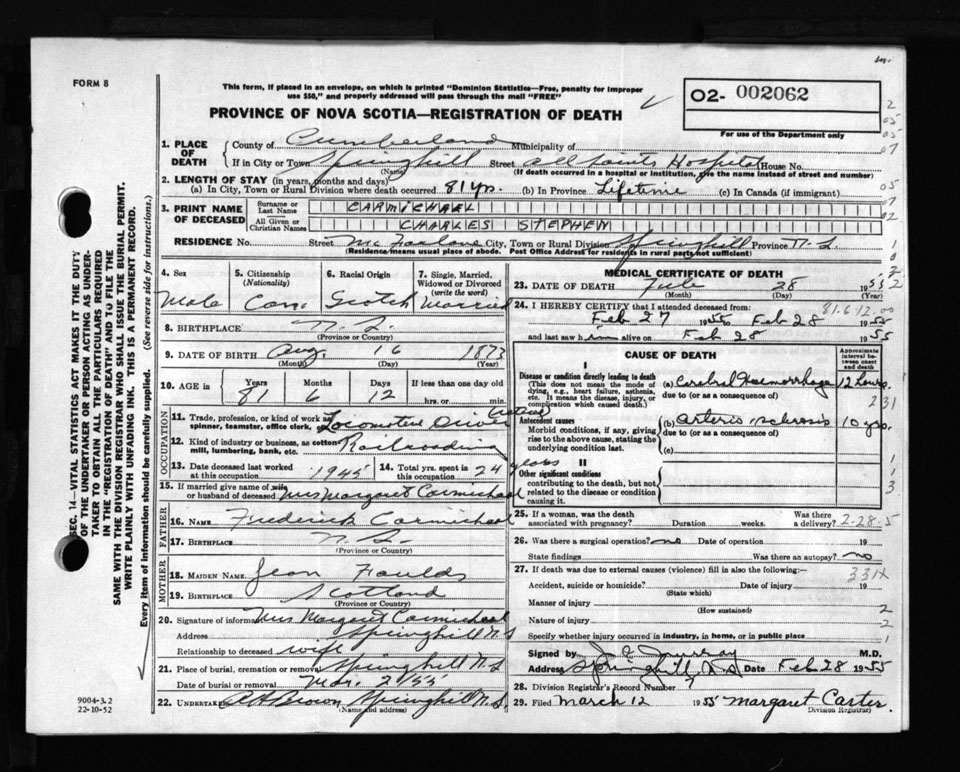 FORM 8
This form, if placed in an envelope, on which is printed "Dominion Statistics—Free, penalty for improper
use $50," and properly addressed will pass through the mail "FREE"
O2- 002062
For use of the Department only
PROVINCE OF NOVA SCOTIA—REGISTRATION OF DEATH
SEC. 14—VITAL STATISTICS ACT MAKES IT THE DUTY
OF THE UNDERTAKER OR PERSON ACTING AS UNDER-
TAKER TO OBTAIN ALL THE PARTICULARS REQUIRED
IN THE "REGISTRATION OF DEATH" AND TO FILE THE
SAME WITH THE DIVISION REGISTRAR WHO SHALL ISSUE THE BURIAL PERMIT.
WRITE PLAINLY WITH UNFADING INK. THIS IS A PERMANENT RECORD.
Every item of information should be carefully supplied. (See reverse side for instructions.)
1. PLACE OF DEATH
County of Cumberland Municipality of
If in City or Town Springhill Street All Saints Hospital House No.
(Name) (If death occurred in a hospital or institution, give the name instead of street and number)
2. LENGTH OF STAY (in years, months and days)
(a) In City, Town or Rural Division where death occurred 81 yrs. (b) In Province Lifetime (c) In Canada (if immigrant)
3. PRINT NAME OF DECEASED
Surname or Last Name CARMICHAEL
All Given or Christian Names CHARLES STEPHEN
RESIDENCE No. Street McFarlane City, Town or Rural Division Springhill Province N.S.
(Residence means usual place of abode. Post Office Address for residents in rural parts not sufficient)
4. Sex
Male
5. Citizenship
(Nationality)
Can.
6. Racial Origin
Scotch
7. Single, Married, Widowed or Divorced
(write the word)
Married
8. BIRTHPLACE N.S.
(Province or Country)
9. DATE OF BIRTH Aug. 16 1873
(Month) (Day) (Year)
10. AGE in Years Months Days If less than one day old
81 6 12 hrs. or min.
OCCUPATION
11. Trade, profession, or kind of work as spinner, teamster, office clerk, Locomotive Driver retired
12. Kind of industry or business, as cotton mill, lumbering, bank, etc. Railroading
13. Date deceased last worked at this occupation 1945
14. Total yrs. spent in this occupation 24 years
15. If married give name of wife or husband of deceased Mrs Margaret Carmichael
FATHER
16. NAME Frederick Carmichael
17. BIRTHPLACE N.S.
(Province or Country)
MOTHER
18. MAIDEN NAME Jean Faulds
19. BIRTHPLACE Scotland
(Province or Country)
20. Signature of informant Mrs Margaret Carmichael
Address Springhill N.S
Relationship to deceased wife
21. Place of burial, cremation or removal Springhill N.S
Date of burial or removal Mar. 2/55
22. UNDERTAKER A H Brown Springhill N.S
(Name and Address)
9004-3.2
22-10-52
MEDICAL CERTIFICATE OF DEATH
23. DATE OF DEATH Feb 28 1955
(Month) (Day) (Year)
24. I HEREBY CERTIFY that I attended deceased from:
Feb 27 1955 to Feb 28 1955
and last saw him alive on Feb 28 1955
CAUSE OF DEATH
Approximate interval between onset and death
I
Disease or condition directly leading to death
(This does not mean the mode of dying, e.g., heart failure, asthenia, etc. It means the disease, injury, or complication which caused death.)
(a) Cerebral Haemorrhage 12 hours
due to (or as a consequence of)
231
Antecedent causes
Morbid conditions, if any, giving rise to the above cause, stating the underlying condition last.
(b) Arterio sclerosis 10 yrs.
due to (or as a consequence of)
(c)
II
Other significant conditions
contributing to the death, but not related to the disease or condition causing it.
25. If a woman, was the death associated with pregnancy? Duration weeks. Was there a delivery? 2-28-5
26. Was there a surgical operation? no Date of operation 19
State findings Was there an autopsy? no
27. If death was due to external causes (violence) fill in also the following:—
331X
Accident, suicide or homicide? Date of injury 19
(State which)
Manner of injury
(How sustained)
Nature of injury
Specify whether injury occurred in industry, in home, or in public place
Signed by J E Murray M.D.
Address Springhill, N.S Date Feb 28 1955
28. Division Registrar's Record Number 7
29. Filed March 12 1955 Margaret Carter
Division Registrar